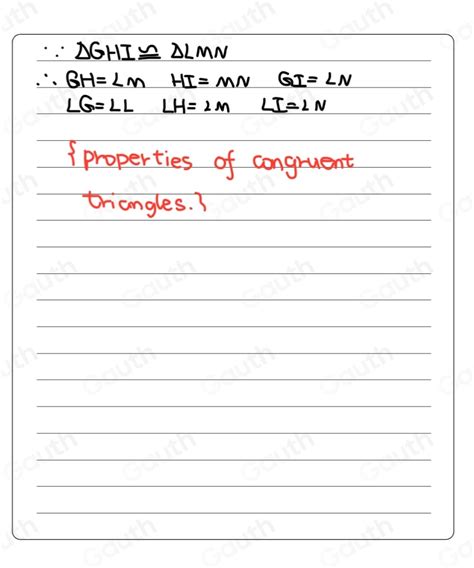 ∵ △GHI ≌ △LMN
∴ GH = LM HI = MN GI = LN
∠G = ∠L ∠H = ∠M ∠I = ∠N
{properties of congruent
triangles.}